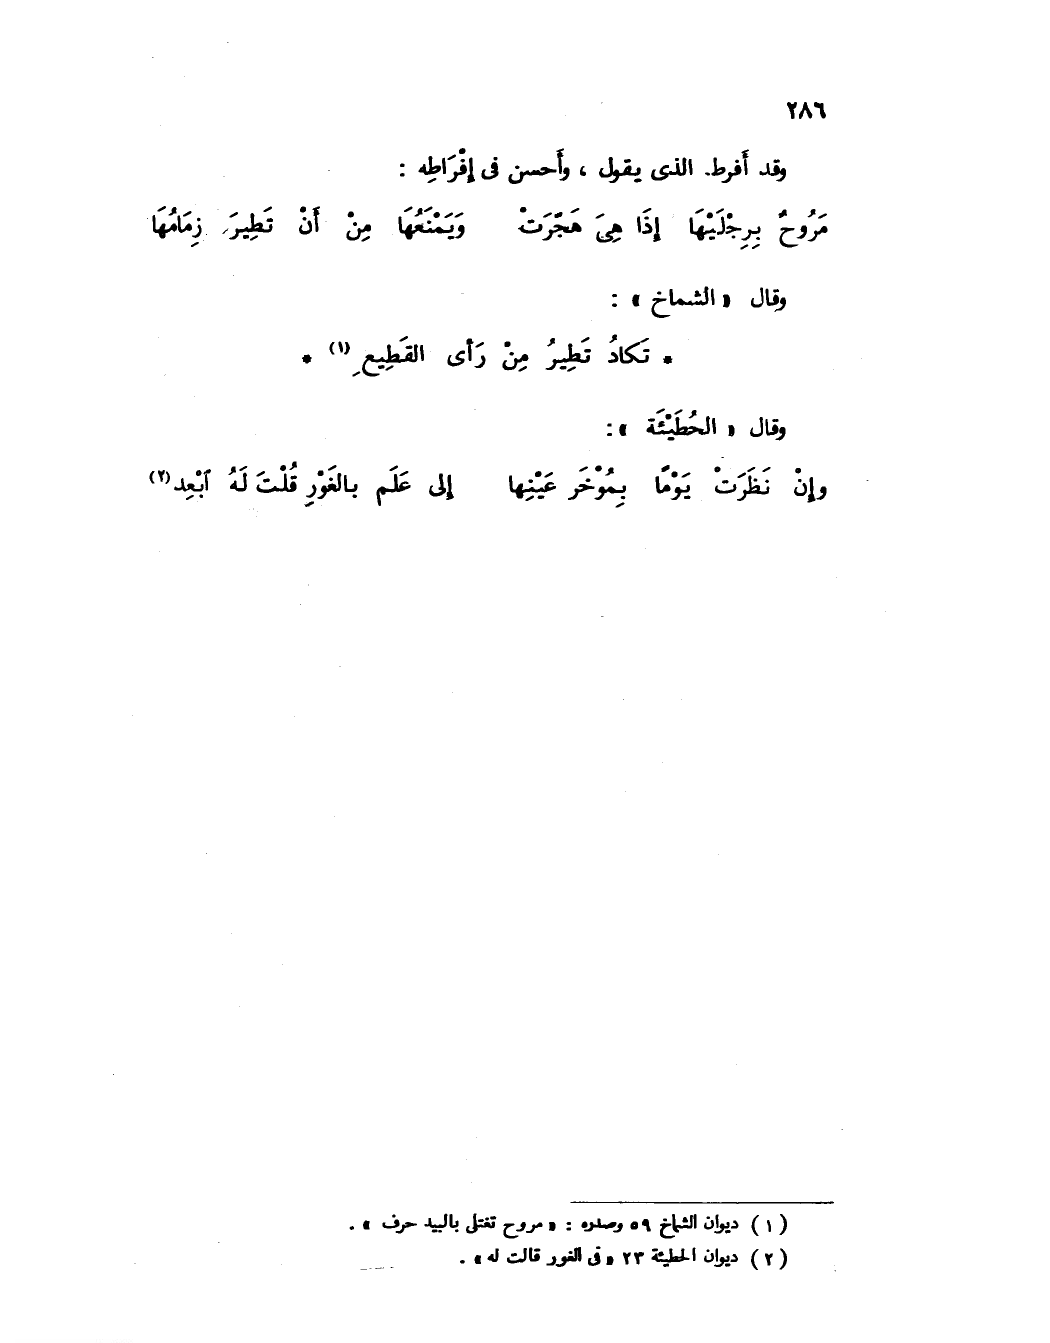 ٢٨٦
وقد أَفرط الذى يقول ، وأَحسن فى إِفْرَاطِه :
مَرُوحٌ بِرِجْلَيْهَا إِذَا هِىَ هَجَّرَتْ وَيَمْنَعُهَا مِنْ أَنْ تَطِيرَ زِمَامُهَا
وقال « الشماخ » :
* تَكادُ تَطِيرُ مِنْ رَأى القَطِيعِ (١) *
وقال « الحُطَيْئَة » :
وإِنْ نَظَرَتْ يَوْمًا بِمُوْخَر عَيْنِها إلى عَلَم بالغَوْرِ قُلْتَ لَهُ ٱبْعِد (٢)
(١) ديوان الشماخ ٥٩ وصدره : « مروح تغتلى بالبيد حرف » .
(٢) ديوان الحطيئة ٢٣ « فى الغور قالت له » .